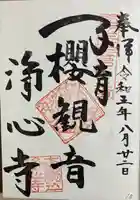 奉拝 令和五年八月廿二日
子育
櫻観音
浄心寺